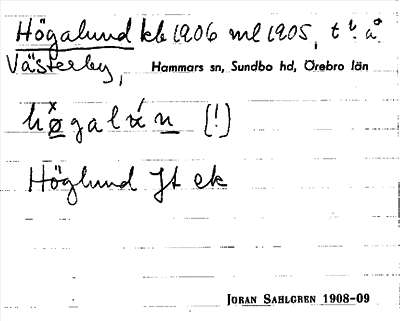 Högalund kb 1906 ml 1905, t h å
Västerby, Hammars sn, Sundbo hd, Örebro län
høgalán (!)
Höglund Jt ek
JÖRAN SAHLGREN 1908-09